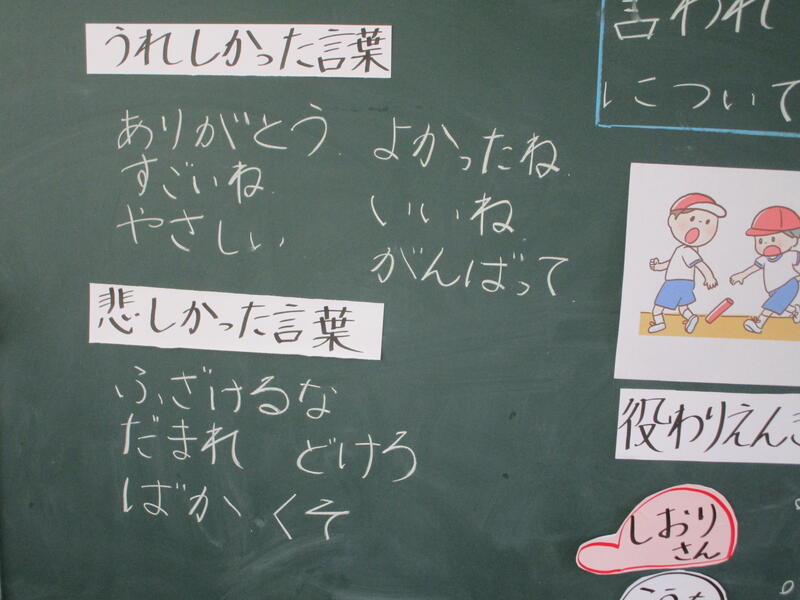 うれしかった言葉
ありがとう
すごいね
やさしい
よかったね
いいね
がんばって
悲しかった言葉
ふざけるな
だまれ どけろ
ばか くそ
言われ
について
役わりえん
しおり
さん